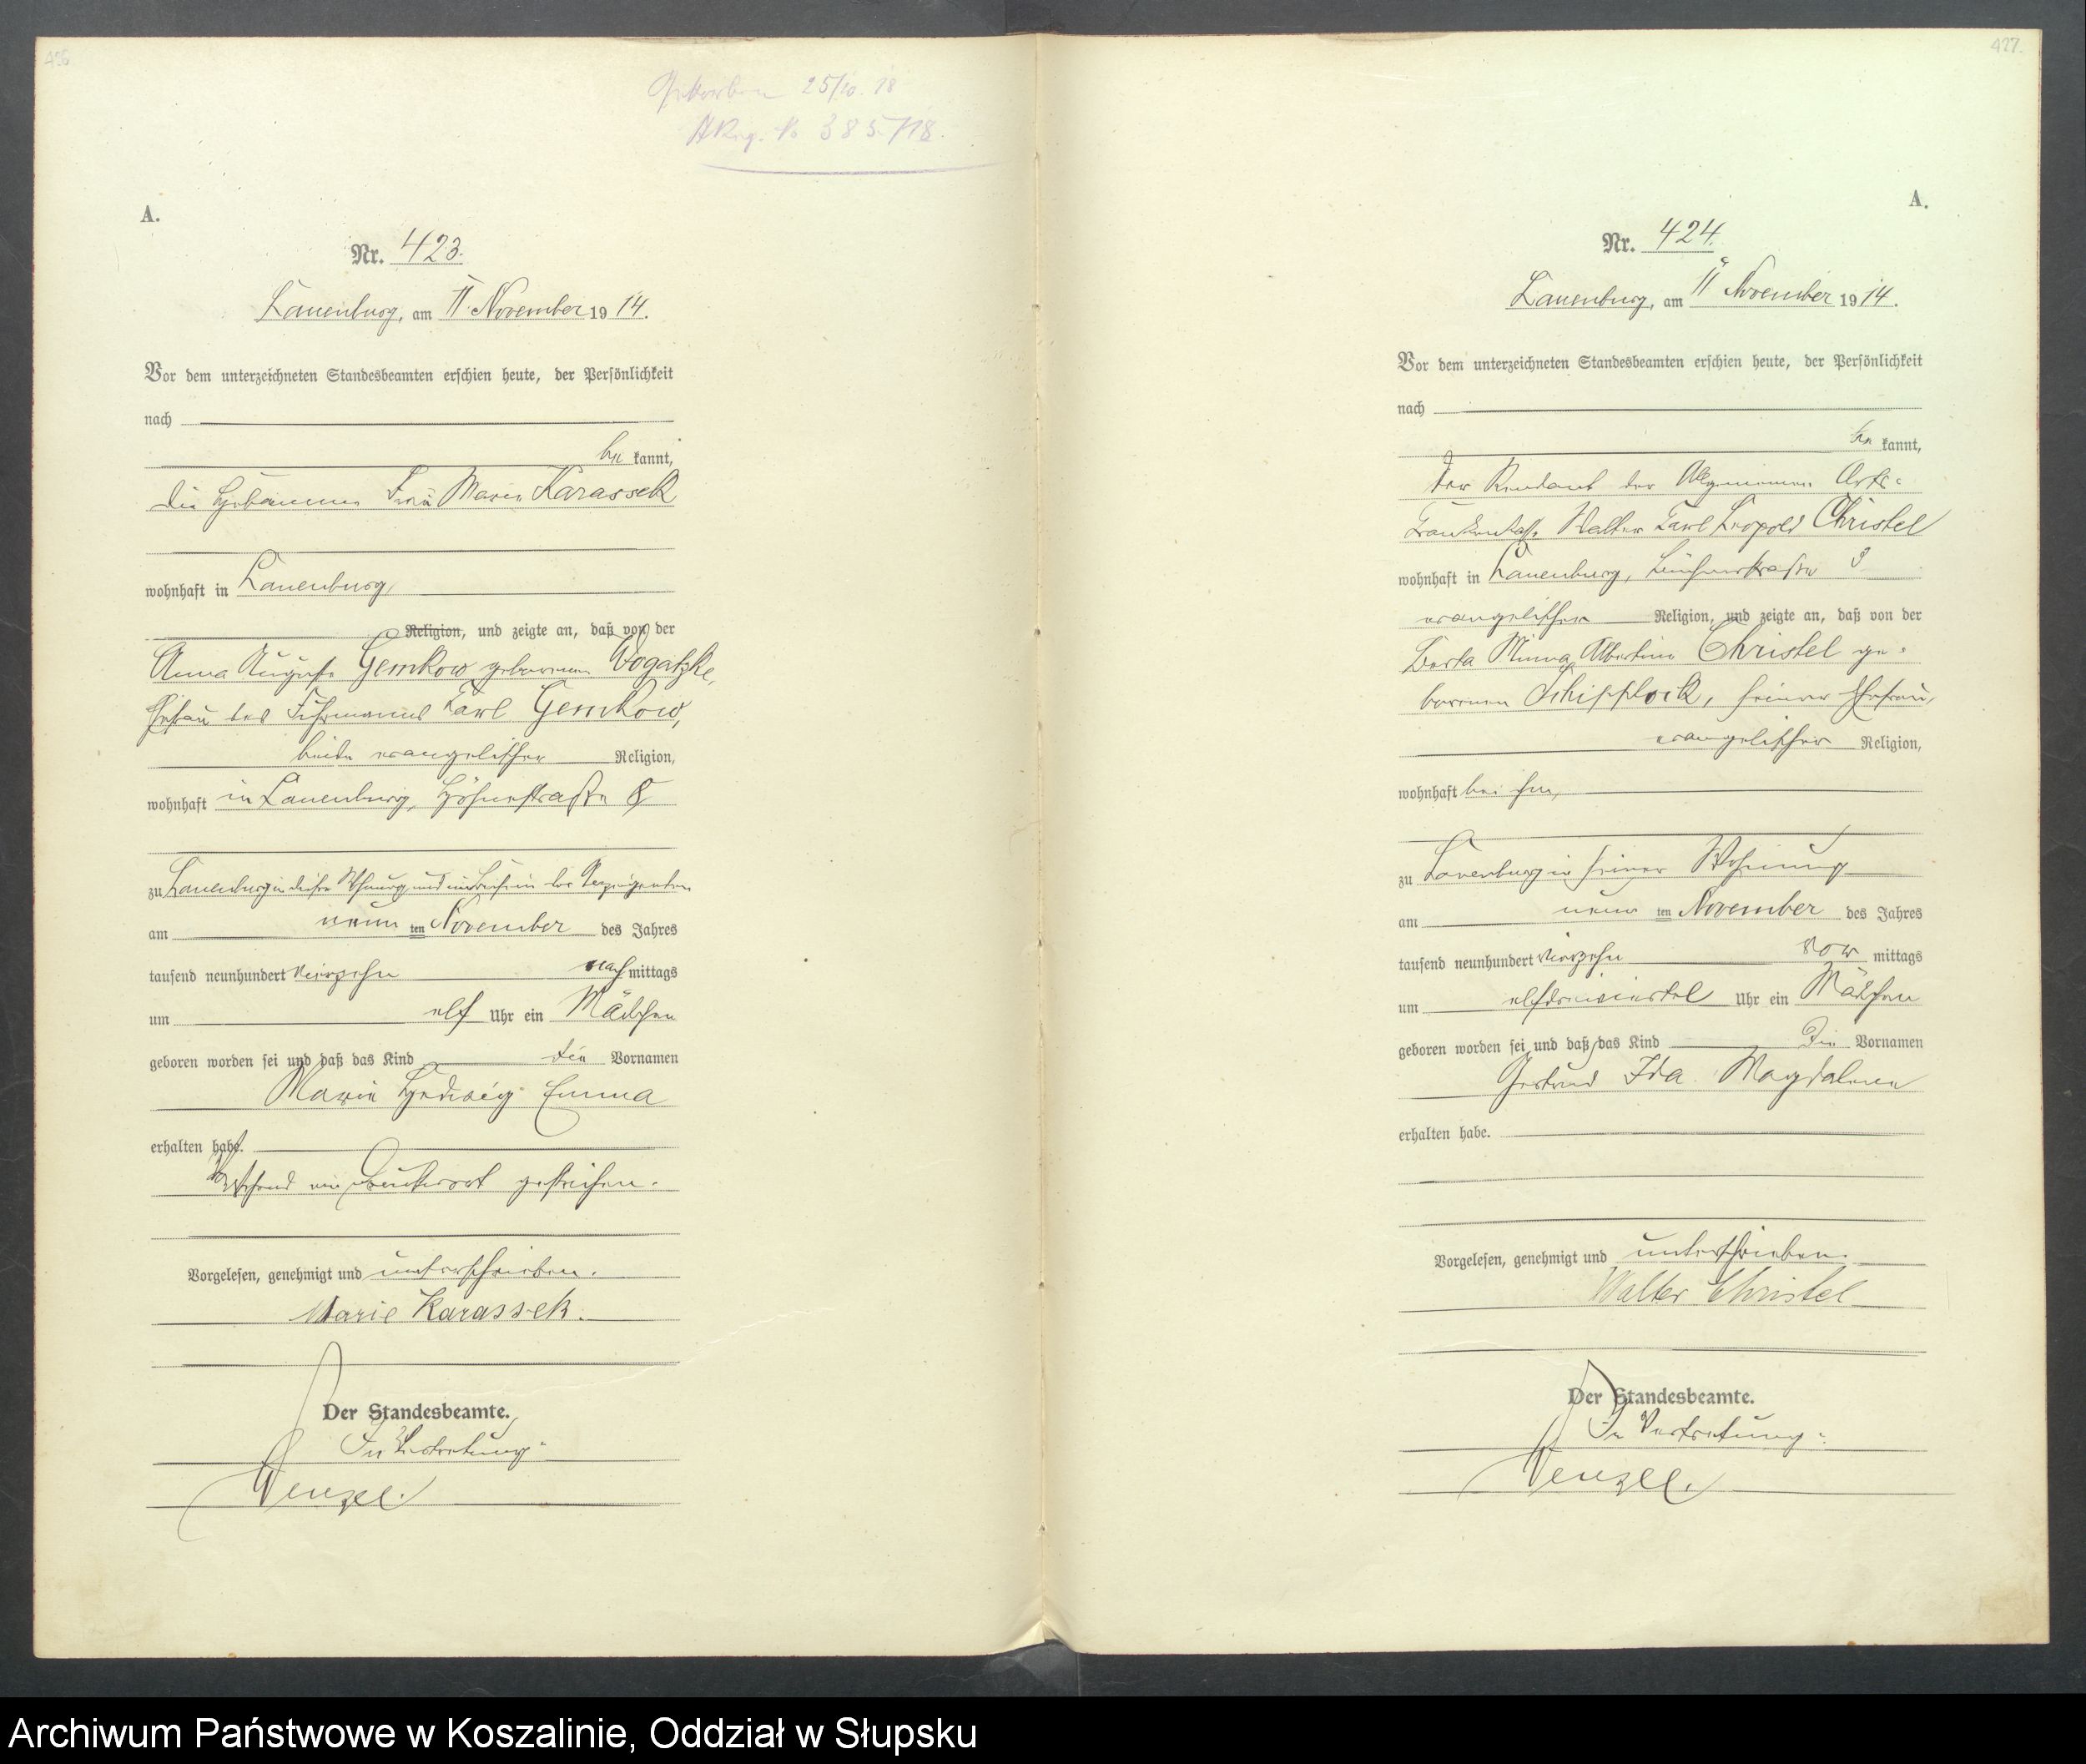 426
Gestorben 25/10. 18
St. Reg. No 385/18.
A.
Nr. 423.
Lauenburg, am 11. November 1914.
Vor dem unterzeichneten Standesbeamten erschien heute, der Persönlichkeit
nach
be kannt,
die Hebamme Frau Marie Karassek
wohnhaft in Lauenburg,
Religion, und zeigte an, daß von der
Anna Auguste Gemkow geborenen Wogatzke,
Ehefrau des Fuhrmanns Karl Gemkow,
beide evangelischer Religion,
wohnhaft in Lauenburg, Höhnestraße 8
zu Lauenburg in dieser Wohnung und im Beisein der Anzeigenden
am neun ten November des Jahres
tausend neunhundert vierzehn nach mittags
um elf Uhr ein Mädchen
geboren worden sei und daß das Kind die Vornamen
Marie Hedwig Emma
erhalten habe.
Vorstehend ein Druckwort gestrichen.
Vorgelesen, genehmigt und unterschrieben.
Marie Karassek.
Der Standesbeamte.
In Vertretung:
Wenzel.
427.
A.
Nr. 424.
Lauenburg, am 11. November 1914.
Vor dem unterzeichneten Standesbeamten erschien heute, der Persönlichkeit
nach
be kannt,
der Rendant der Allgemeinen Orts-
krankenkasse Walter Karl Leopold Christel
wohnhaft in Lauenburg, 3
evangelischer Religion, und zeigte an, daß von der
Berta Minna Albertine Christel ge-
borenen Schifflock, seiner Ehefrau,
evangelischer Religion,
wohnhaft bei ihm,
zu Lauenburg in seiner Wohnung
am neun ten November des Jahres
tausend neunhundert vierzehn vor mittags
um elfdreiviertel Uhr ein Mädchen
geboren worden sei und daß das Kind die Vornamen
Gertrud Ida Magdalene
erhalten habe.
Vorgelesen, genehmigt und unterschrieben.
Walter Christel
Der Standesbeamte.
In Vertretung:
Wenzel.
Archiwum Państwowe w Koszalinie, Oddział w Słupsku